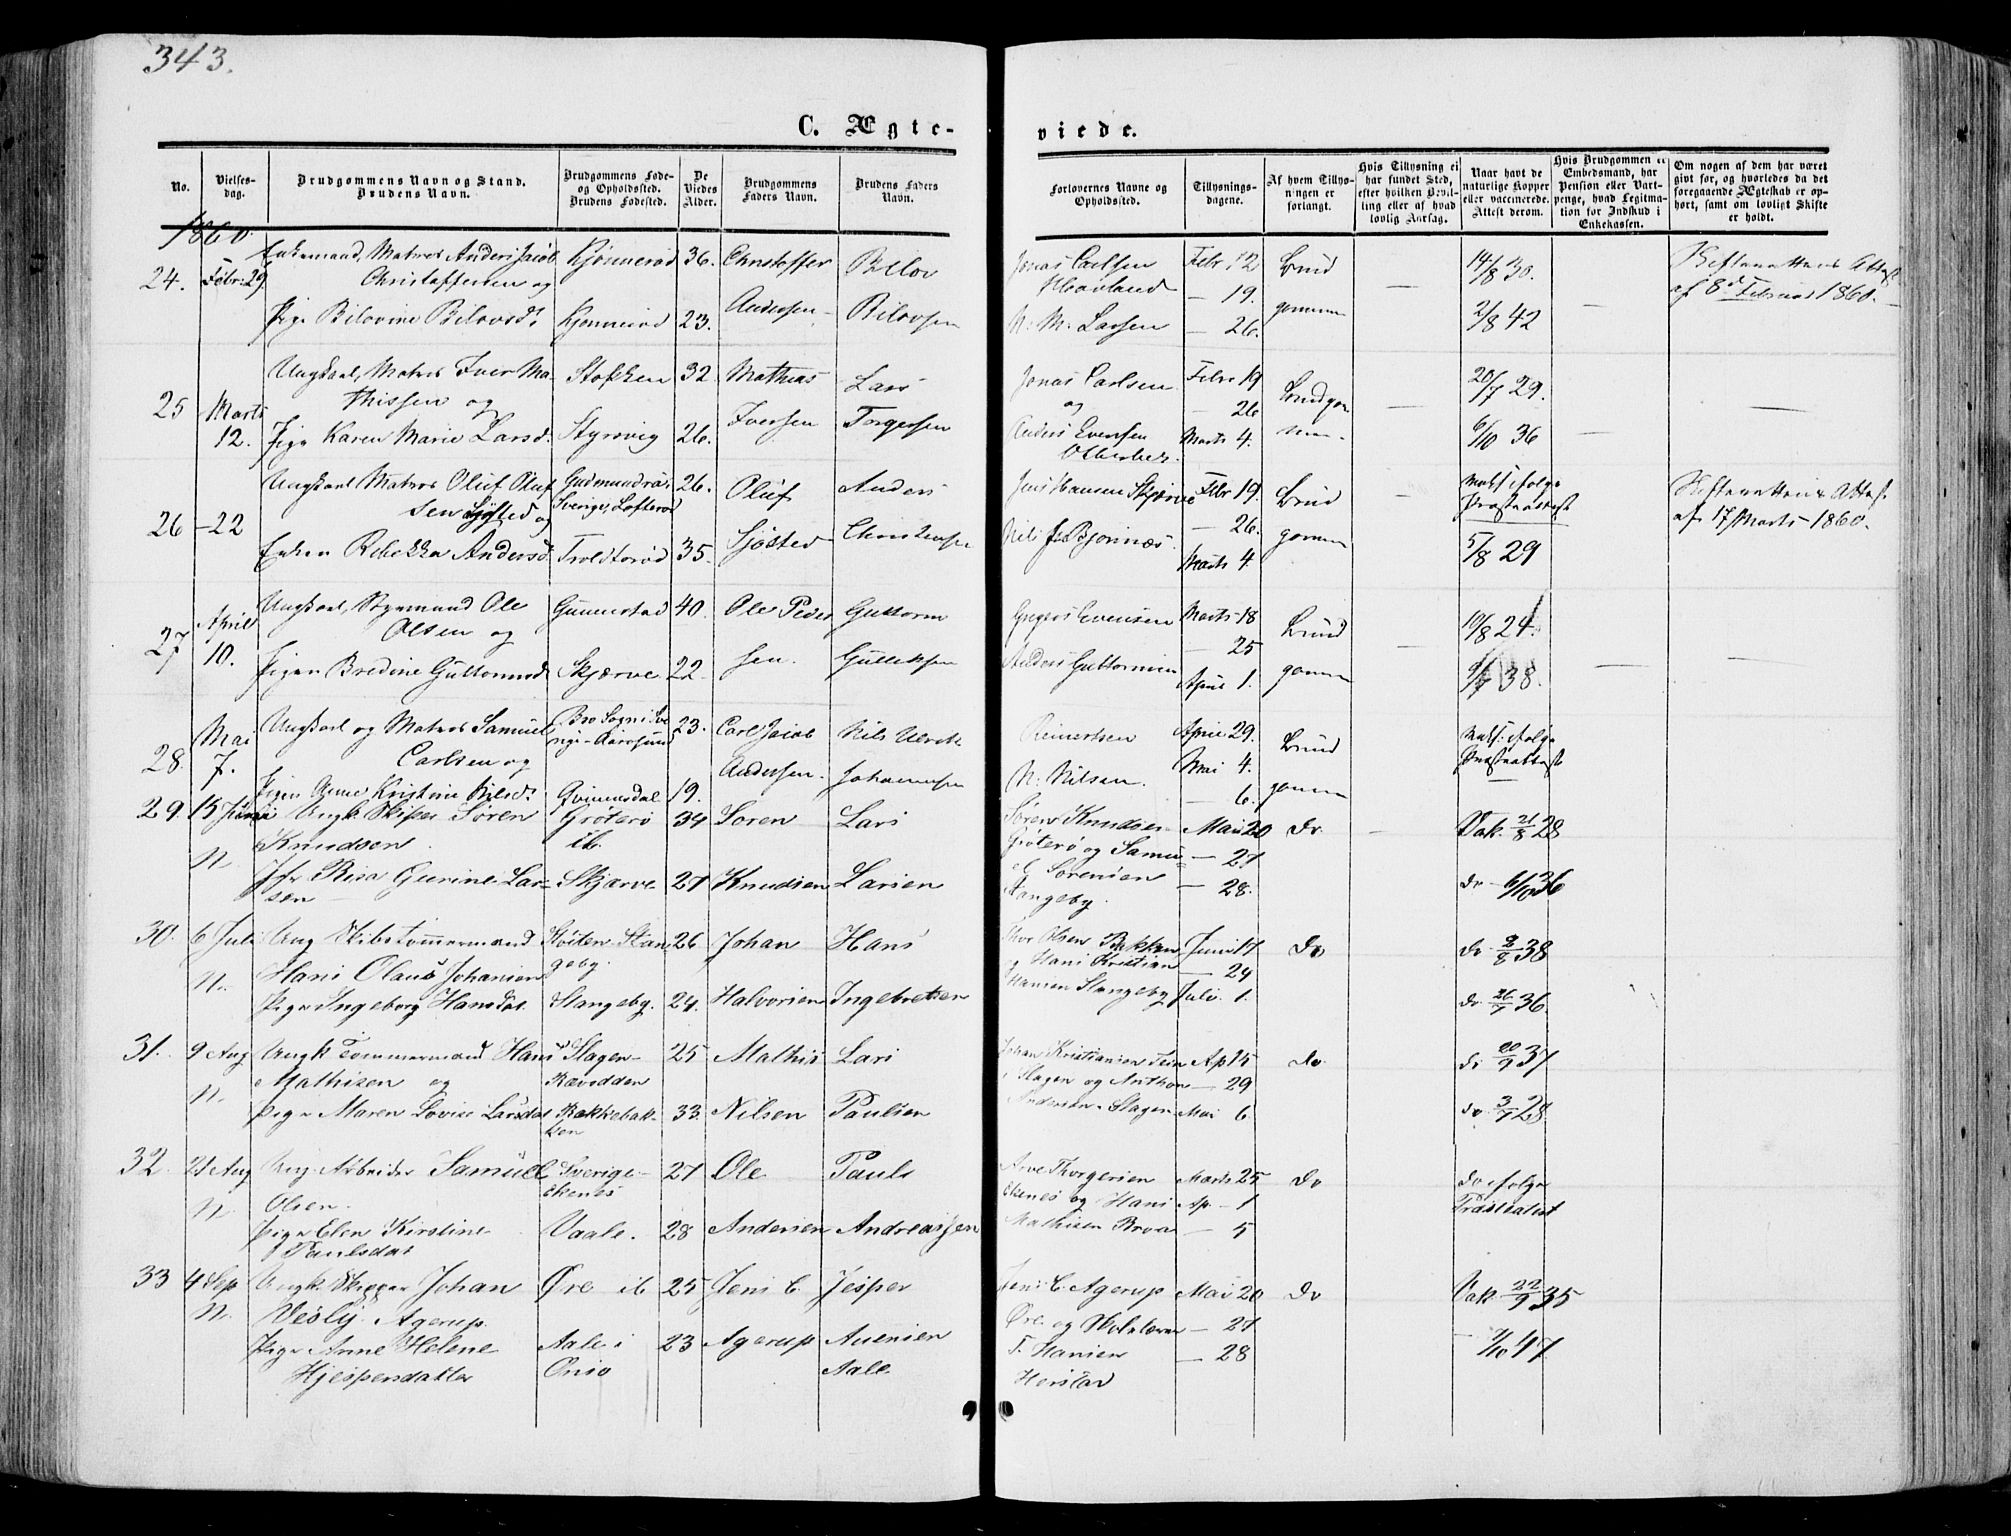 343.
C. Ægte-
viede.
No.
Vielses-
dag.
Brudgommens Navn og Stand.
Brudens Navn.
Brudgommens Føde-
og Opholdssted.
Brudens Fødested.
De
Viedes
Alder.
Brudgommens
Faders Navn.
Brudens Faders
Navn.
Forlovernes Navne og
Opholdssted.
Tillysnings-
dagene.
Af hvem Tillys-
ningen er
forlangt.
Hvis Tillysning ei
har fundet Sted,
efter hvilken Bevil-
ling eller af hvad
lovlig Aarsag.
Naar havt de
naturlige Kopper
eller vaccinerede.
Attest derom.
Hvis Brudgommen er
Embedsmand, har
Pension eller Vart-
penge, hvad Legitima-
tion for Indskud i
Enkekassen.
Om nogen af dem har været
givt før, og hvorledes da det
foregaaende Ægteskab er op-
hørt, samt om lovligt Skifte
er holdt.
1860.
24. Febr. 29. Enkemand, Matros Anders Jacob Kjønnerød 36. Christoffer Bilov
Christoffersen og
Pige Bilovine Bilovsd. Kjønnerød 23. Andersen Bilovsen
Jonas Carlsen Febr. 12 Brud 14/8 30. Skifterettens Attest
Havland — 19. af 8d Februar 1860.
N. M. Larsen — 26. gommen 2/8 42
25 Marts 12. Ungkarl, Matros Iver Ma- 32 Mathias Lars
thissen og
Pige Karen Marie Larsd. Styrsvig 26. Iversen Torgersen
Jonas Carlsen Febr 19 Brudgom 20/7 29.
og — 26
Anders Evensen Marts 4. 6/10 36
26 — 22 Ungkarl Matros Oluf Oluf 26. Oluf Anders
sen Sjøsted og Sverige,
Enken Rebekka Andersd. 35. Sjøsted
Jens Hansen Skjerve Febr 19. Brud Skifterettens Attest
— 26. gommen af 17 Marts 1860.
Marts 4. 5/8 29
27 April 10. Ungkarl, Styrmand Ole Gunnestad 40. Ole Peder Guttorm
Olsen og
Pigen Bredine Guttormsd. Skjærve 22. sen. Gulliksen
Gregers Evensen Marts 18 Brud 10/8 24.
— 25
Anders Guttormsen April 1. gommen 38.
28. Mai 7. Ungkarl og Matros Samuel Bro Sogn i Sve 23. Carl Jacob Nils Ulrik
Carlsen og
Pigen Anne Kristine Nilsd. 19. Andersen. Johannesen
Reinertsen April 29. Brud
Mai 4.
N. Nilsen. — 6. gommen
29. 15 Juni Ungk Skiper Søren Grøterø 34 Søren Lars
N. Knudsen ib.
Jfr Risa Gurine Lar- Skjærve 27 Knudsen Larsen
sen
Søren Knudsen Mai 20 do. Vak. 21/8 28
Grøterø og Samu- — 27
el Sørensen — 28. do — 6/10 36
Stangeby.
30. 6 Juli Ung Skibstømmermand Stan 26 Johan Hans
N. Hans Olaus Johansen geby.
Pige Ingeborg Hansdat. Stangeby. 24. Halvorsen Ingebretsen
Thor Olsen Bakken Juni 17 Do do 38
og Hans Kristian — 24
Hansen Slangeby Juli. 1. do 26/7 36.
31. 9 Aug Ungk Tømmermand Hans Slagen- 25 Mathis Lars
N. Mathisen og Rævødden
Pige Maren Lovise Larsdat Bakkebak- 33. Nilsen Paulsen
ken
Johan Kristiansen Ap 15 do. do 20/9 37
Slagen og Anthon — 29
Andersen Slagen Mai 6. do 3/7 28.
32. 21 Aug Ung. Arbeider Samuel Sverige 27 Ole Pauls
N. Olsen. Ekenes
Pige Elen Kirstine Vaale. 28 Andersen Andreassen
Paulsdat
Arve Thorgersen Marts 25 do do ifølge
Ekenes og Hans Ap. — 1 Præsteattest
Mathisen Broa — 5
33 4 Sep Ungk. Skipper Johan Øre ib 25 Jens C. Jesper
N. Vesly Agerup.
Pige Anne Helene Aale i 23 Agerup Auensen
Hjespersdatter Onsø Aale
Jens C. Agerup Mai 20 do Vak 22/9 35
Øre og Skolelærer — 27
T. Hansen — 28 7/10 47
Herstad